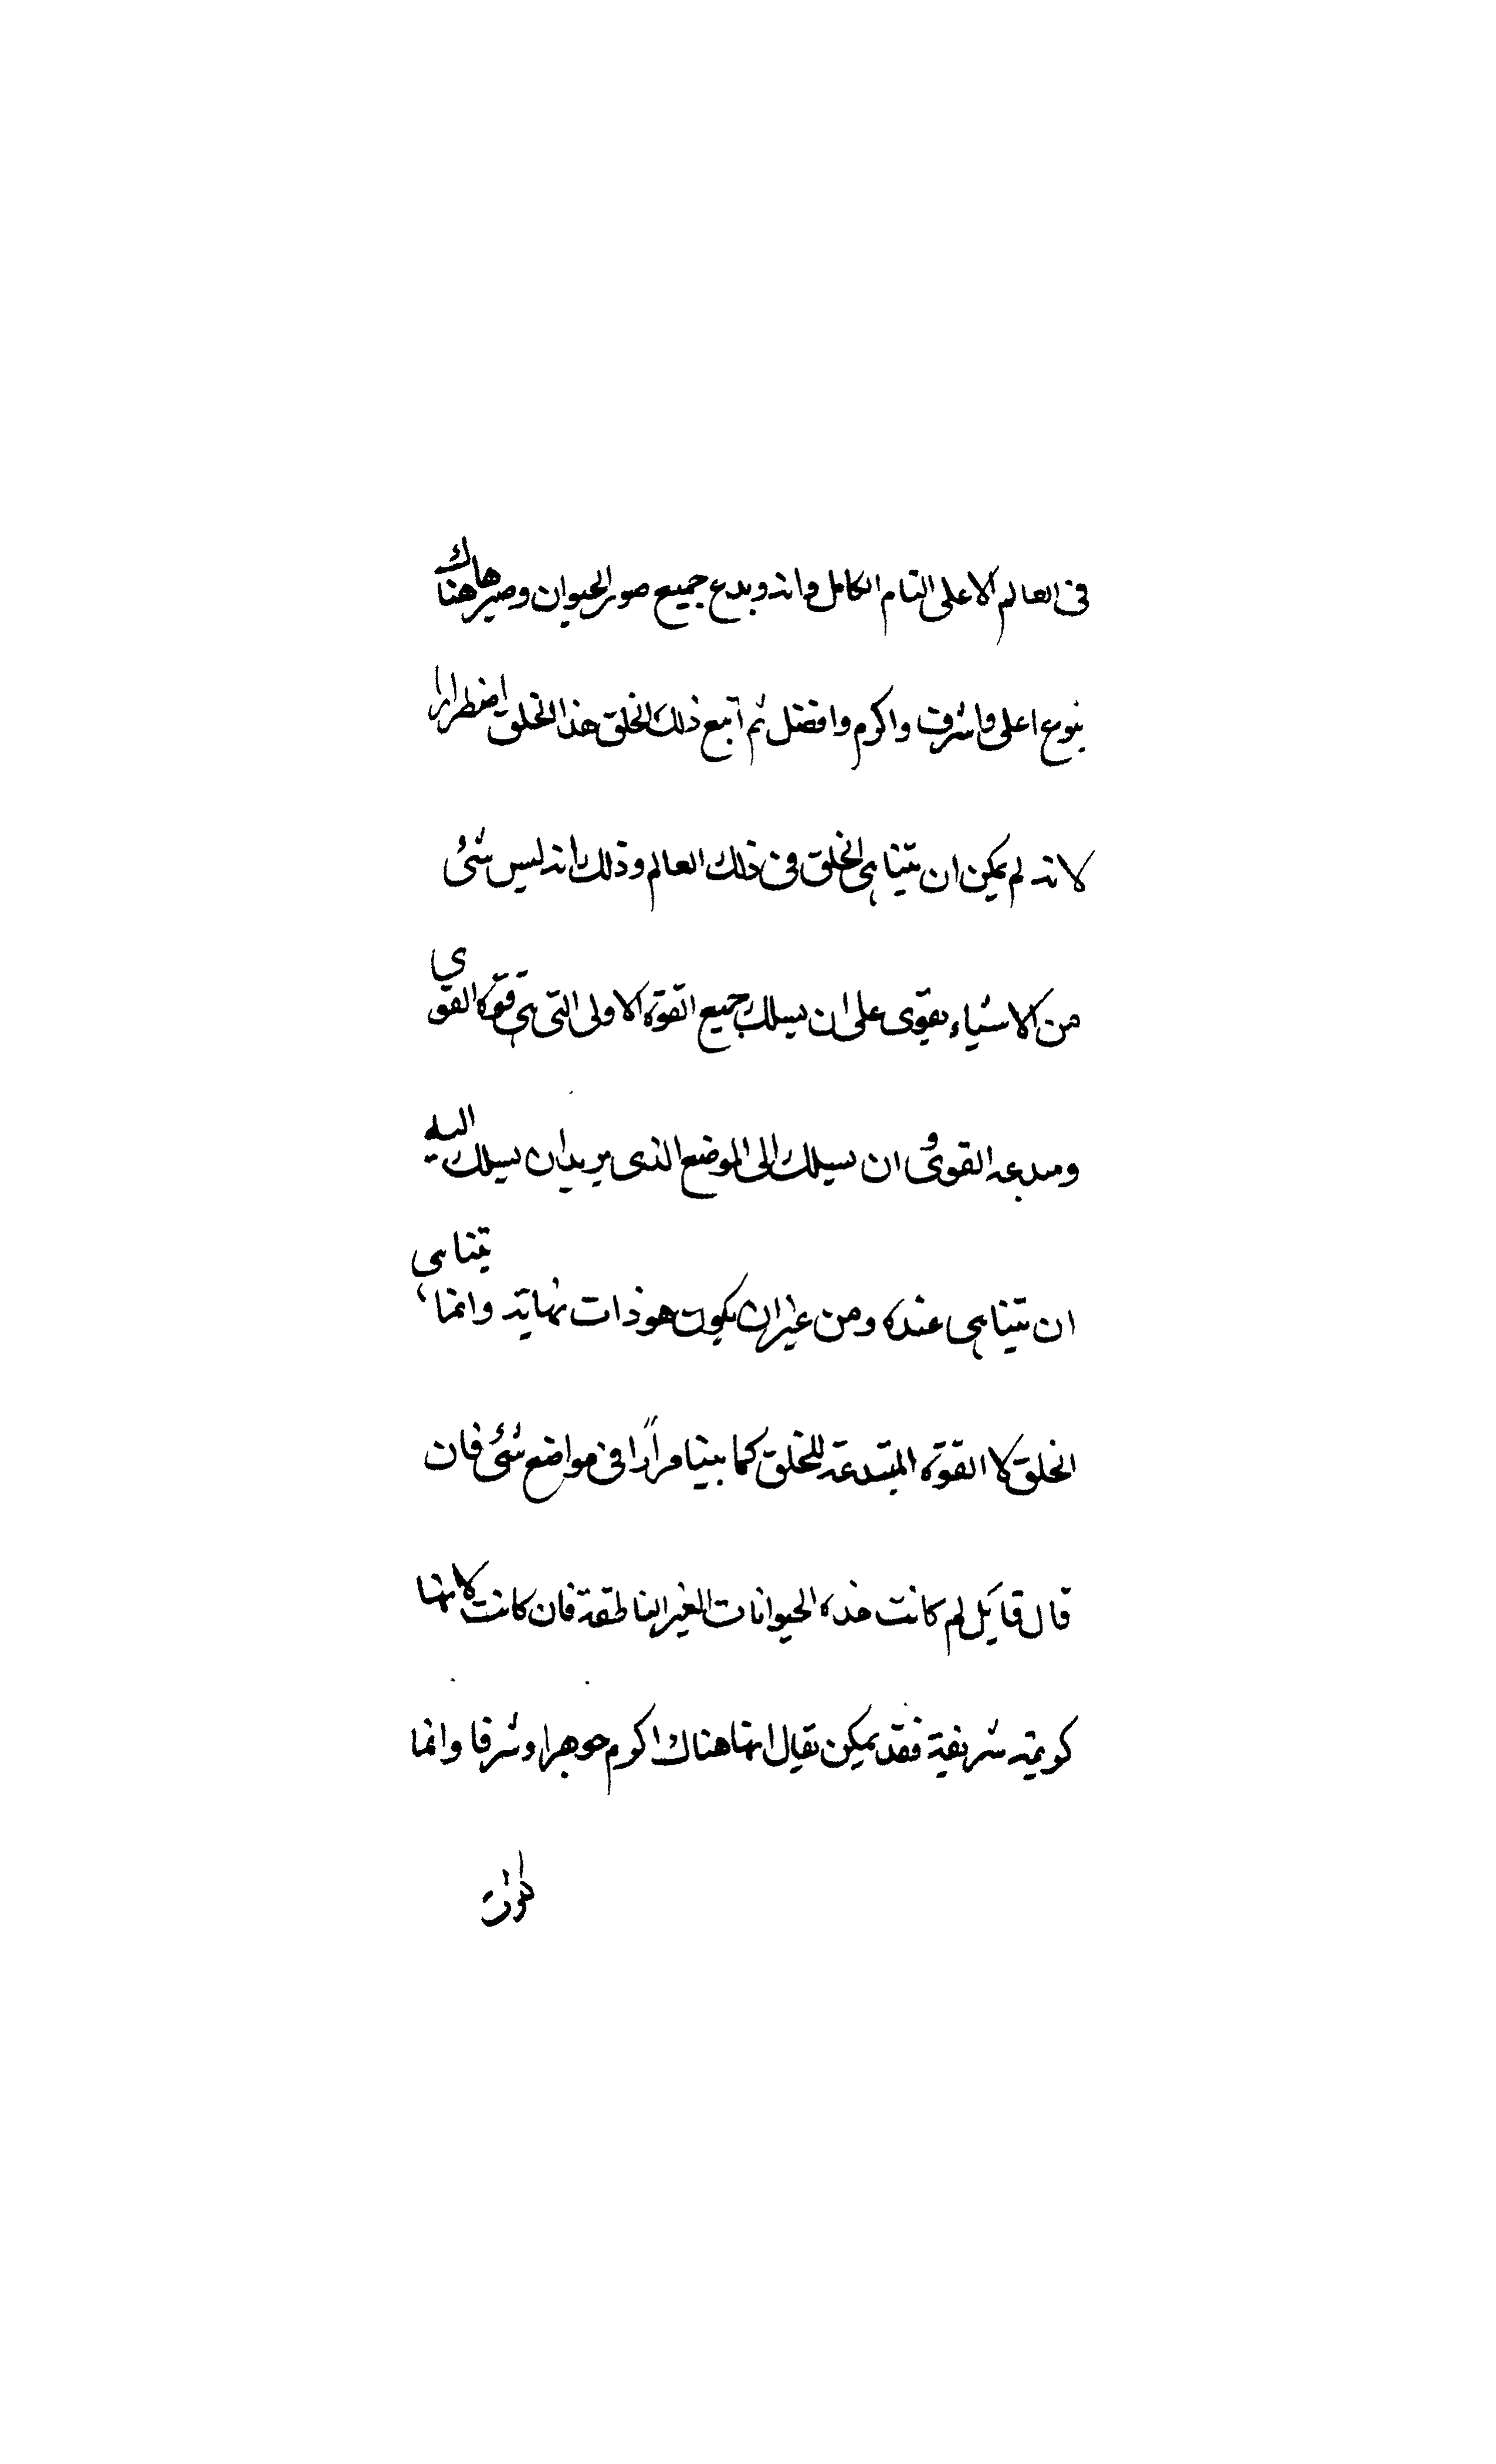 فى العالم الاعلى التام الكامل وانه وبدع جميع صور الحيوان وصيرها هناك
بنوع اعلى واشرف واكرم وافضل ثم اتبع ذلك الخلق هذا الخلق اضطرارا
لانه لم يمكن ان يتناهى الخلق فى ذلك العالم وذلك انه ليس شئ
من الاشياء يقوى على ان يسلك جميع القوة الاولى التى هى قوة القوى
ومبدعة القوى و ان يسلك الى الموضع الذى يريد ان يسلك اليه
ان يتناهى عنده ومن غير ان يكون هو ذات نهاية وانما يتناهى
الخلق لا القوة المبتدعة للخلق كما بينا مرارًا فى مواضع شئ فان
قال قايل لم كانت هذه الحيوانات الغير الناطقة فان كانت لانها
كريمة شريفة فقد يمكن يقال انها هناك اكرم جوهرا وشرفا وانما